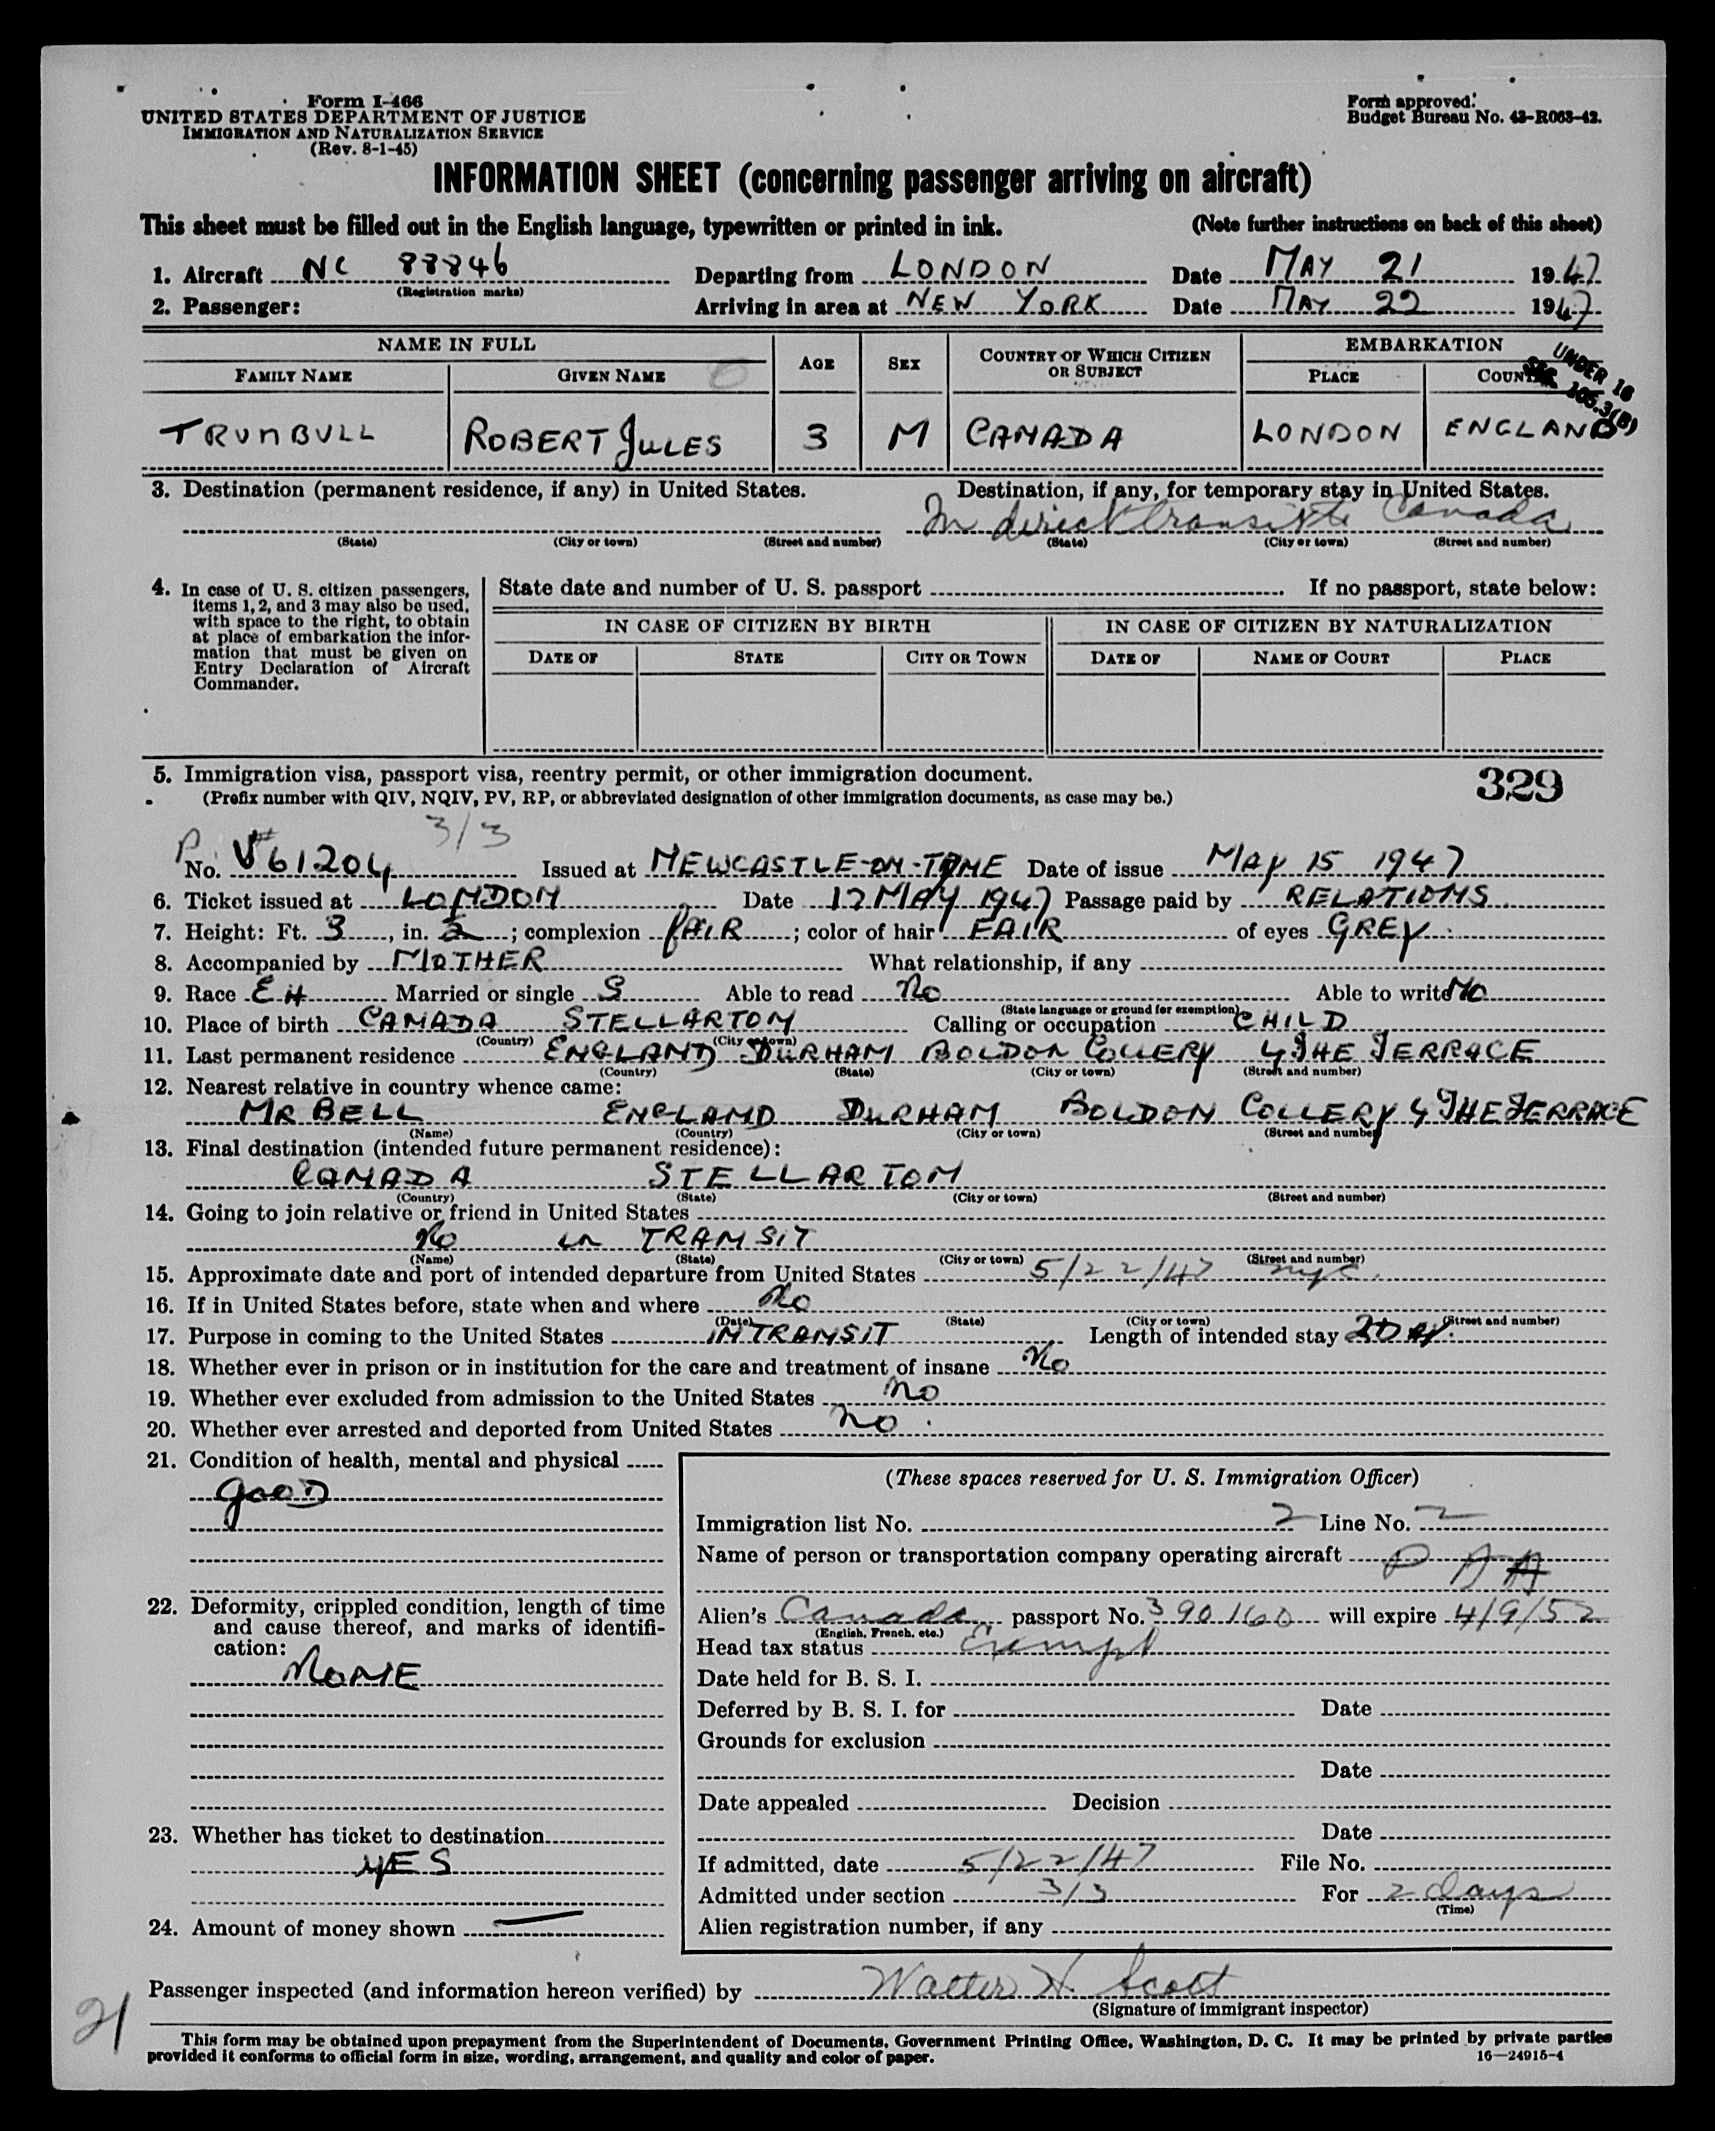 Form I-466
UNITED STATES DEPARTMENT OF JUSTICE
IMMIGRATION AND NATURALIZATION SERVICE
(Rev. 8-1-45)
Form approved.
Budget Bureau No. 43-R063-42.
INFORMATION SHEET (concerning passenger arriving on aircraft)
This sheet must be filled out in the English language, typewritten or printed in ink. (Note further instructions on back of this sheet)
1. Aircraft NC 88846 Departing from LONDON Date MAY 21 1947
(Registration marks)
2. Passenger: Arriving in area at NEW YORK Date MAY 22 1947
NAME IN FULL AGE SEX COUNTRY OF WHICH CITIZEN OR SUBJECT EMBARKATION
FAMILY NAME GIVEN NAME PLACE COUNTRY
UNDER 16
SEC. 105.3(B)
TRUMBULL ROBERT JULES 3 M CANADA LONDON ENGLAND
3. Destination (permanent residence, if any) in United States. Destination, if any, for temporary stay in United States.
In direct transit to Canada
(State) (City or town) (Street and number) (State) (City or town) (Street and number)
4. In case of U. S. citizen passengers, items 1, 2, and 3 may also be used, with space to the right, to obtain at place of embarkation the information that must be given on Entry Declaration of Aircraft Commander.
State date and number of U. S. passport If no passport, state below:
IN CASE OF CITIZEN BY BIRTH IN CASE OF CITIZEN BY NATURALIZATION
DATE OF STATE CITY OR TOWN DATE OF NAME OF COURT PLACE
5. Immigration visa, passport visa, reentry permit, or other immigration document. 329
(Prefix number with QIV, NQIV, PV, RP, or abbreviated designation of other immigration documents, as case may be.)
3/3
P No. V# 61204 Issued at NEWCASTLE-ON-TYNE Date of issue MAY 15 1947
6. Ticket issued at LONDON Date 17 MAY 1947 Passage paid by RELATIONS
7. Height: Ft. 3, in. 2; complexion FAIR; color of hair FAIR of eyes GREY
8. Accompanied by MOTHER What relationship, if any
9. Race EH Married or single S Able to read NO Able to write NO
(State language or ground for exemption)
10. Place of birth CANADA STELLARTON Calling or occupation CHILD
(Country) (City or town)
11. Last permanent residence ENGLAND DURHAM BOLDON COLLERY 4 THE TERRACE
(Country) (State) (City or town) (Street and number)
12. Nearest relative in country whence came:
MR BELL ENGLAND DURHAM BOLDON COLLERY 4 THE TERRACE
(Name) (Country) (City or town) (Street and number)
13. Final destination (intended future permanent residence):
CANADA STELLARTON
(Country) (State) (City or town) (Street and number)
14. Going to join relative or friend in United States
NO IN TRANSIT
(Name) (State) (City or town) (Street and number)
15. Approximate date and port of intended departure from United States 5/22/47 nyc.
16. If in United States before, state when and where NO
(Date) (State) (City or town) (Street and number)
17. Purpose in coming to the United States IN TRANSIT Length of intended stay 2 DAY.
18. Whether ever in prison or in institution for the care and treatment of insane NO
19. Whether ever excluded from admission to the United States NO
20. Whether ever arrested and deported from United States NO.
21. Condition of health, mental and physical
GOOD
22. Deformity, crippled condition, length of time and cause thereof, and marks of identification:
NONE
23. Whether has ticket to destination
YES
24. Amount of money shown —
(These spaces reserved for U. S. Immigration Officer)
Immigration list No. 2 Line No. 2
Name of person or transportation company operating aircraft P A A
Alien's Canada passport No. 390160 will expire 4/9/52
(English, French, etc.)
Head tax status Exempt
Date held for B. S. I.
Deferred by B. S. I. for Date
Grounds for exclusion
Date
Date appealed Decision
Date
If admitted, date 5/22/47 File No.
Admitted under section 3/3 For 2 days
(Time)
Alien registration number, if any
Passenger inspected (and information hereon verified) by Walter H Scott
(Signature of immigrant inspector)
21
This form may be obtained upon prepayment from the Superintendent of Documents, Government Printing Office, Washington, D. C. It may be printed by private parties
provided it conforms to official form in size, wording, arrangement, and quality and color of paper. 16—24915-4